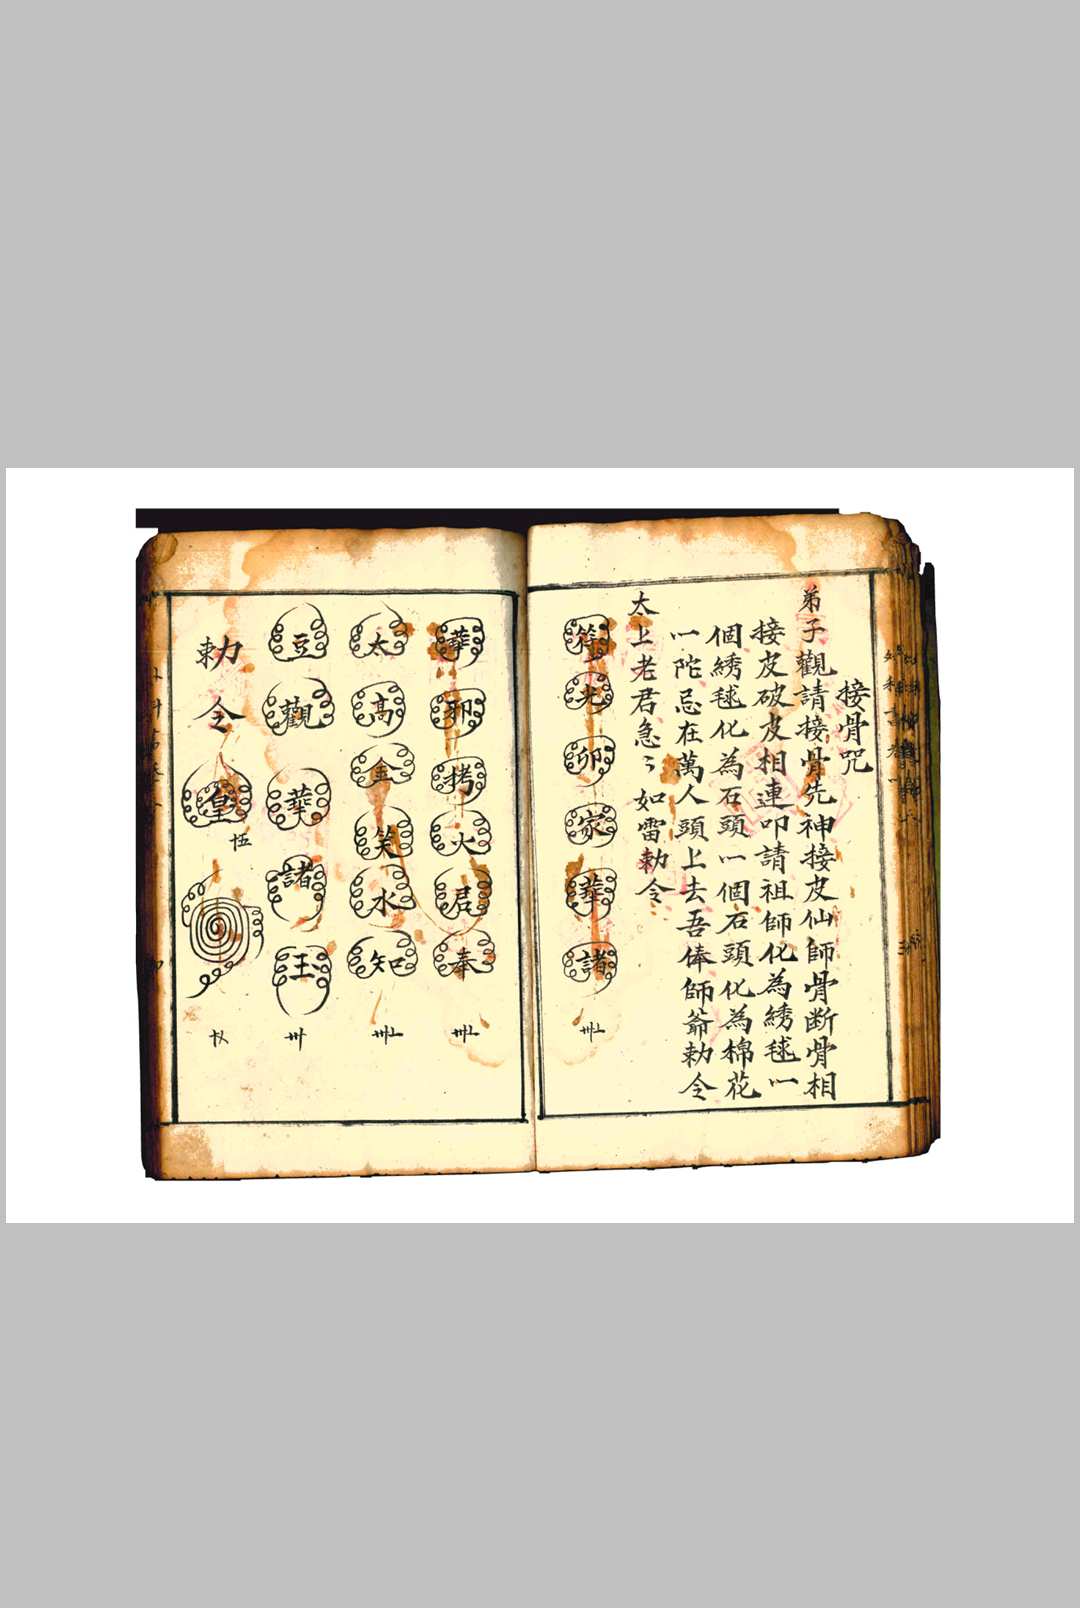 接骨咒
弟子觀請接骨先神接皮仙師骨断骨相
接皮破皮相連叩請祖師化為綉毬一
個綉毬化為石頭一個石頭化為棉花
一陀忌在萬人頭上去吾俸師爺勅令
太上老君急〻如雷勅令
符光卯家華諸
華卯拷火君奉
太高金笑水知
豆觀葬諸王
勅令皇